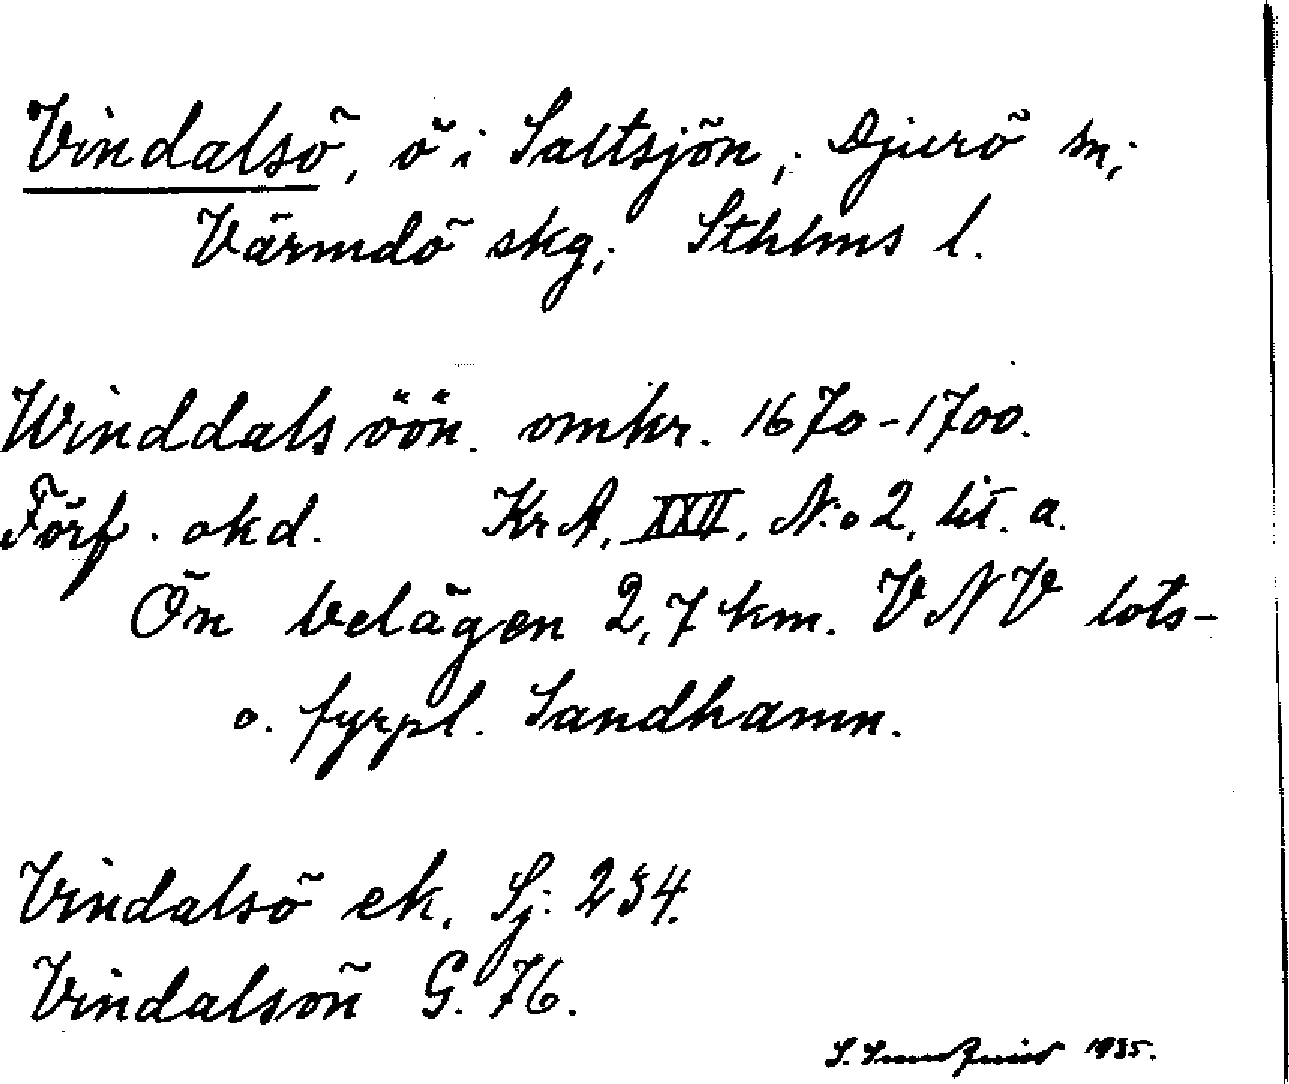 Vindalsö, ö i Saltsjön, Djurö sn;
Värmdö skg; Sthlms l.
Winddals öön. omkr. 1670-1700.
Förf. okd. KrA, XXII. N:o 2, lit. a.
Ön belägen 2,7 km. VNV lots-
o. fyrpl. Sandhamn.
Vindalsö ek. Sj. 234.
Vindalsön G. 76.
S. 1935.